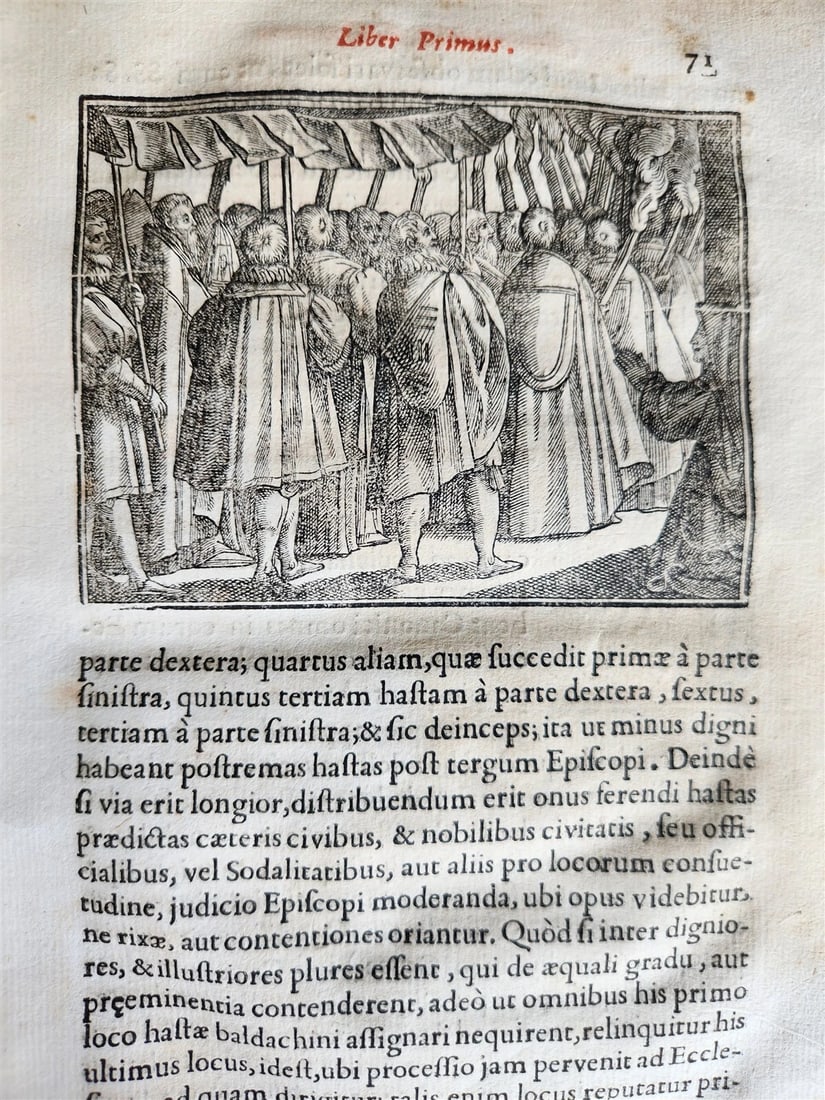 Liber Primus.
71
parte dextera; quartus aliam, quæ ſuccedit primæ à parte
ſiniſtra, quintus tertiam haſtam à parte dextera, ſextus,
tertiam à parte ſiniſtra; & ſic deinceps; ita ut minus digni
habeant poſtremas haſtas poſt tergum Epiſcopi. Deindè
ſi via erit longior, diſtribuendum erit onus ferendi haſtas
prædictas cæteris civibus, & nobilibus civitatis, ſeu offi-
cialibus, vel Sodalitatibus, aut aliis pro locorum conſue-
tudine, judicio Epiſcopi moderanda, ubi opus videbitur,
ne rixæ, aut contentiones oriantur. Quòd ſi inter dignio-
res, & illuſtriores plures eſſent, qui de æquali gradu, aut
pręeminentia contenderent, adeò ut omnibus his primo
loco haſtæ baldachini aſſignari nequirent, relinquitur his
ultimus locus, ideſt, ubi proceſſio jam pervenit ad Eccle-
ad quam dirigitur: talis enim locus reputatur pri-